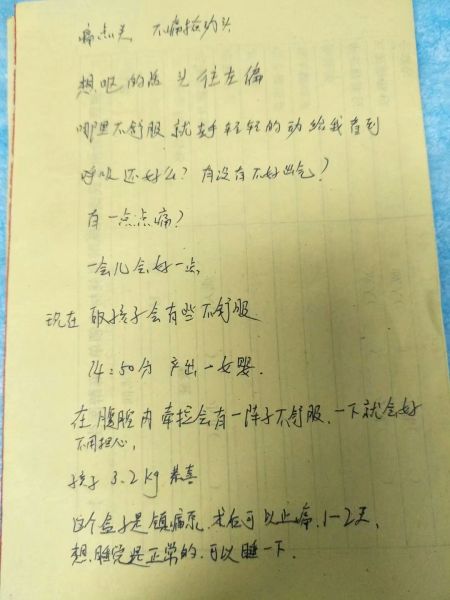 痛点头 不痛摇头
想呕的话 头往左偏
哪里不舒服就去手轻轻的动给我看到
呼吸还好么？有没有不好出气？
有一点点痛？
一会儿会好一点
现在 取孩子会有些不舒服
14：50分 产出一女婴．
在腹腔内牵拉会有一阵子不舒服．一下就会好
不用担心，
孩子 3.2kg 恭喜
这个盒子是镇痛泵．术后可以止痛．1-2天．
想睡觉是正常的．可以睡一下．